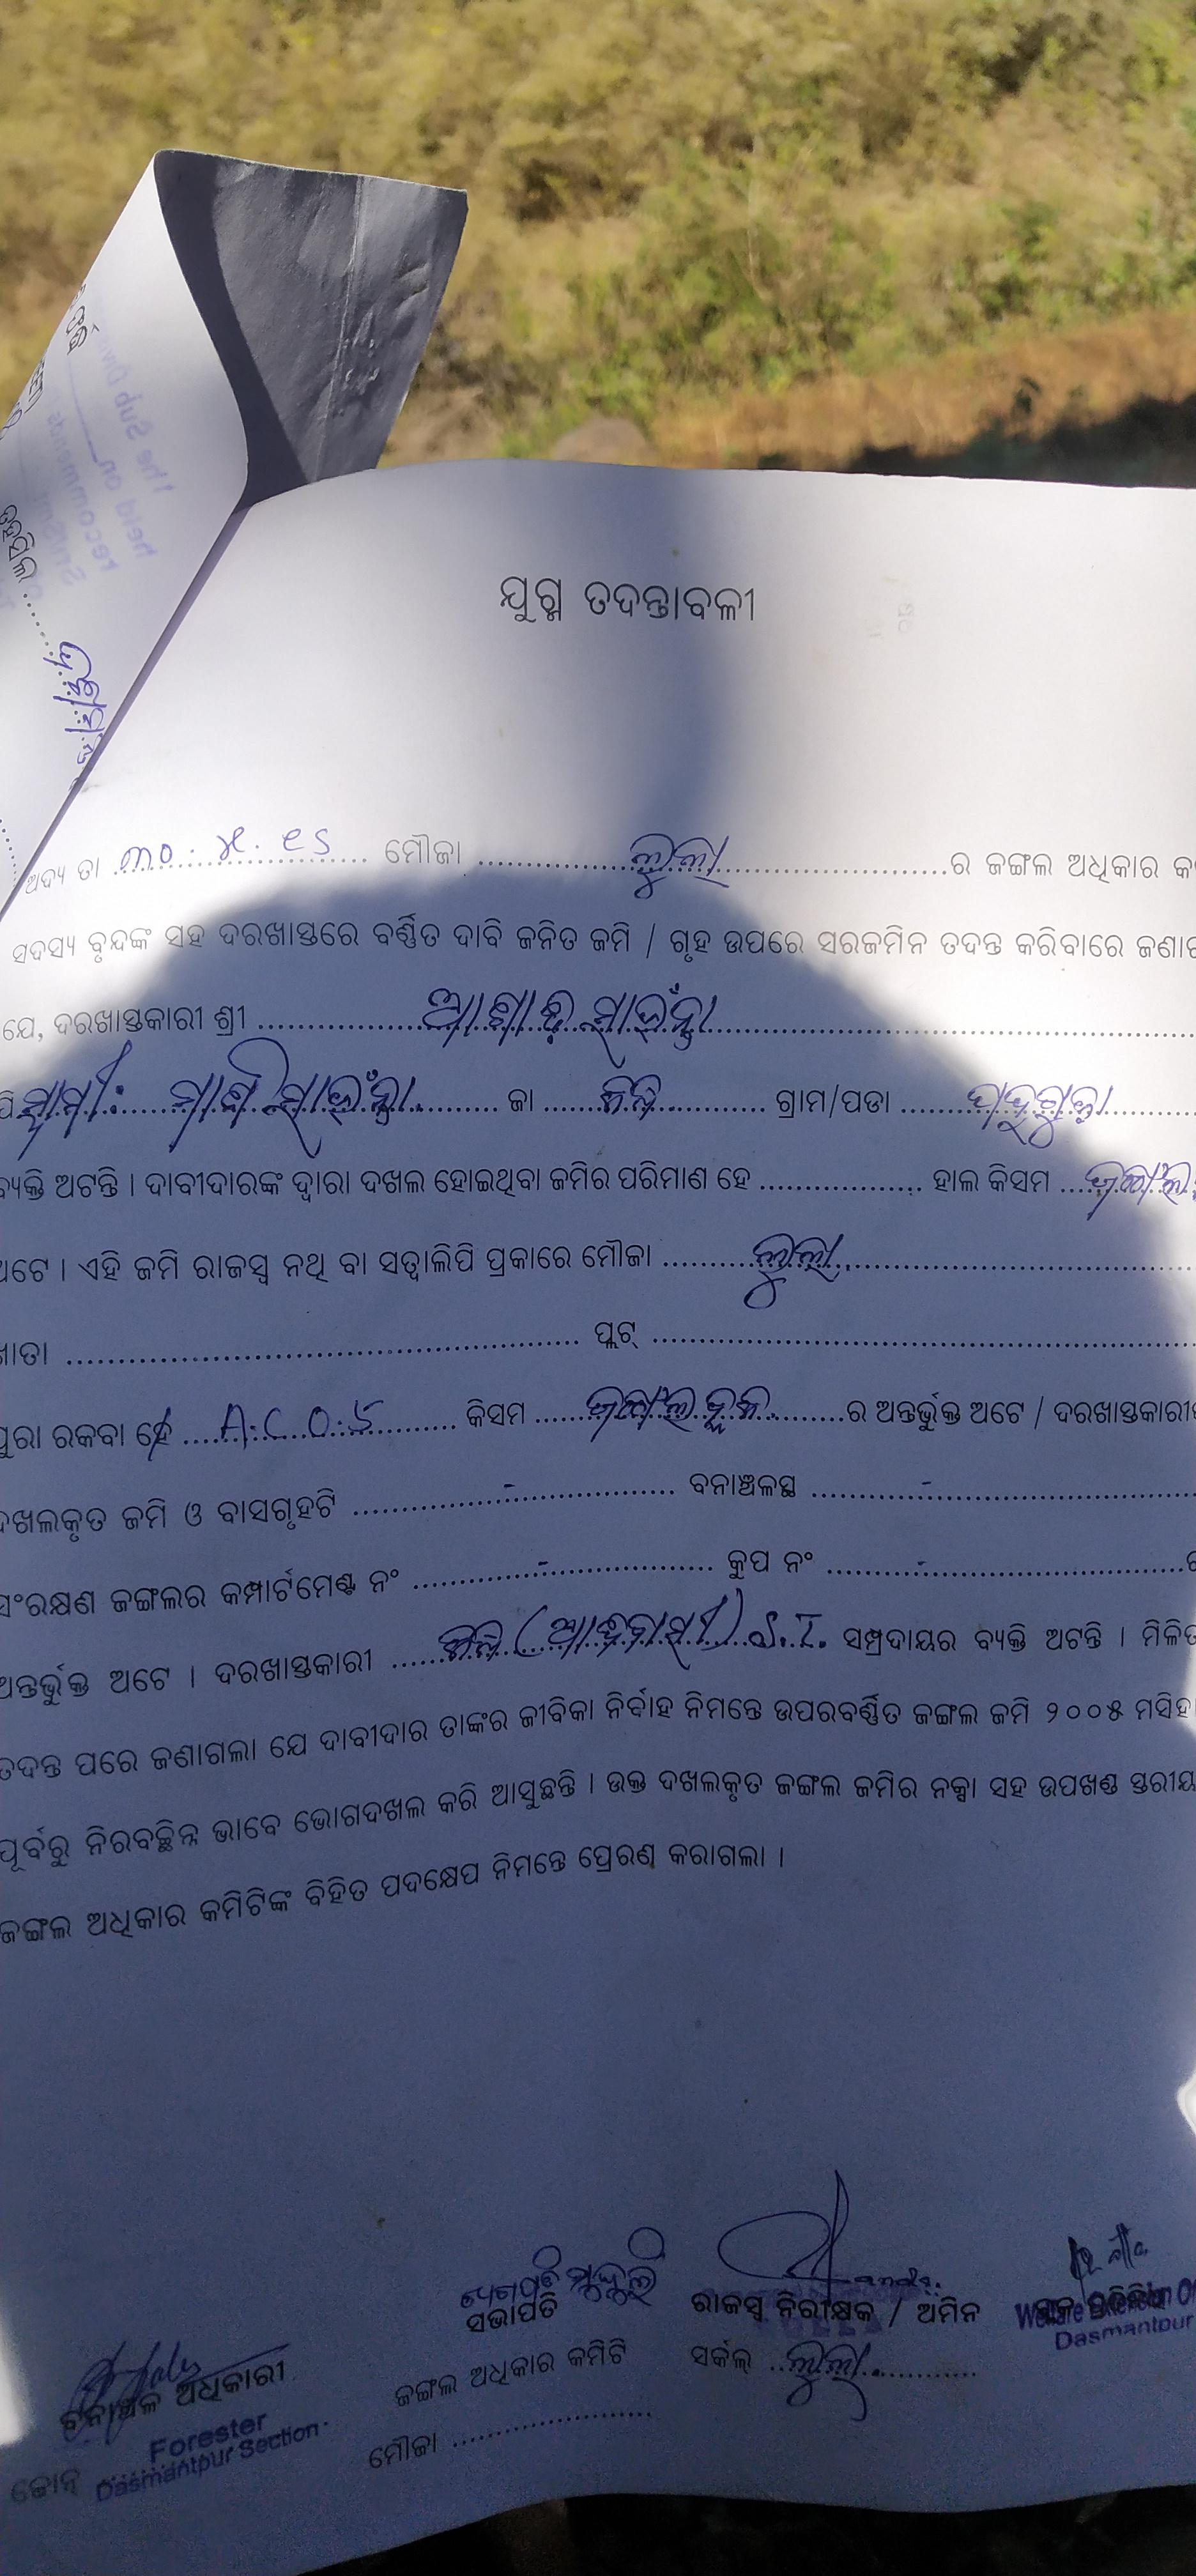 ଯୁଗ୍ମ ତଦନ୍ତାବଳୀ
ଅଦ୍ୟ ତା ୩୦.୪.୧୨ ମୌଜା ଲୁଲା ର ଜଙ୍ଗଲ ଅଧିକାର କ
ସଦସ୍ୟ ବୃନ୍ଦଙ୍କ ସହ ଦରଖାସ୍ତରେ ବର୍ଣ୍ଣିତ ଦାବି ଜନିତ ଜମି / ଗୃହ ଉପରେ ସରଜମିନ ତଦନ୍ତ କରିବାରେ ଜଣା
ଯେ, ଦରଖାସ୍ତକାରୀ ଶ୍ରୀ
ଜା ଗ୍ରାମ/ପଡା
ବ୍ୟକ୍ତି ଅଟନ୍ତି । ଦାବୀଦାରଙ୍କ ଦ୍ୱାରା ଦଖଲ ହୋଇଥିବା ଜମିର ପରିମାଣ ହେ ହାଲ କିସମ ଜଙ୍ଗଲ
ଅଟେ । ଏହି ଜମି ରାଜସ୍ୱ ନଥି ବା ସତ୍ୱାଲିପି ପ୍ରକାରେ ମୌଜା ଲୁଲା
ଖାତା ପ୍ଲଟ୍
ପୁରା ରକବା ହେ କିସମ ର ଅନ୍ତର୍ଭୁକ୍ତ ଅଟେ / ଦରଖାସ୍ତକାରୀ
ଦଖଲକୃତ ଜମି ଓ ବାସଗୃହଟି - ବନାଞ୍ଚଳସ୍ଥ -
ସଂରକ୍ଷଣ ଜଙ୍ଗଲର କମ୍ପାର୍ଟମେଣ୍ଟ ନଂ - କୁପ ନଂ -
ଅନ୍ତର୍ଭୁକ୍ତ ଅଟେ । ଦରଖାସ୍ତକାରୀ (ଆଦିବାସୀ) S.T. ସମ୍ପ୍ରଦାୟର ବ୍ୟକ୍ତି ଅଟନ୍ତି । ମିଳିତ
ତଦନ୍ତ ପରେ ଜଣାଗଲା ଯେ ଦାବୀଦାର ତାଙ୍କର ଜୀବିକା ନିର୍ବାହ ନିମନ୍ତେ ଉପରବର୍ଣ୍ଣିତ ଜଙ୍ଗଲ ଜମି ୨୦୦୫ ମସିହା
ପୂର୍ବରୁ ନିରବଚ୍ଛିନ୍ନ ଭାବେ ଭୋଗଦଖଲ କରି ଆସୁଛନ୍ତି । ଉକ୍ତ ଦଖଲକୃତ ଜଙ୍ଗଲ ଜମିର ନକ୍ସା ସହ ଉପଖଣ୍ଡ ସ୍ତରୀୟ
ଜଙ୍ଗଲ ଅଧିକାର କମିଟିଙ୍କ ବିହିତ ପଦକ୍ଷେପ ନିମନ୍ତେ ପ୍ରେରଣ କରାଗଲା ।
ସଭାପତି ରାଜସ୍ୱ ନିରୀକ୍ଷକ / ଅମିନ
Dasmantpur
ବନାଞ୍ଚଳ ଅଧିକାରୀ ଜଙ୍ଗଲ ଅଧିକାର କମିଟି ସର୍କଲ୍ ଲୁଲା
Forester
Dasmantpur Section
ମୌଜା